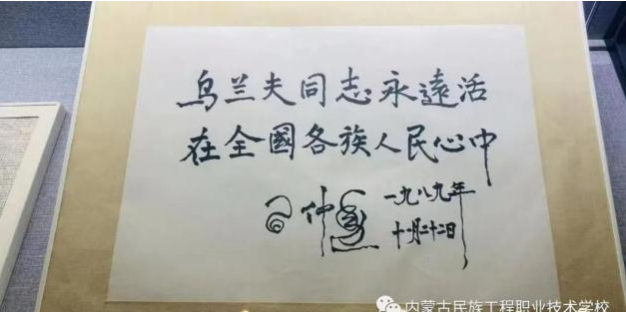 乌兰夫同志永遠活
在全國各族人民心中
習仲勋
一九八九年
十一月二十二日
内蒙古民族工程职业技术学校